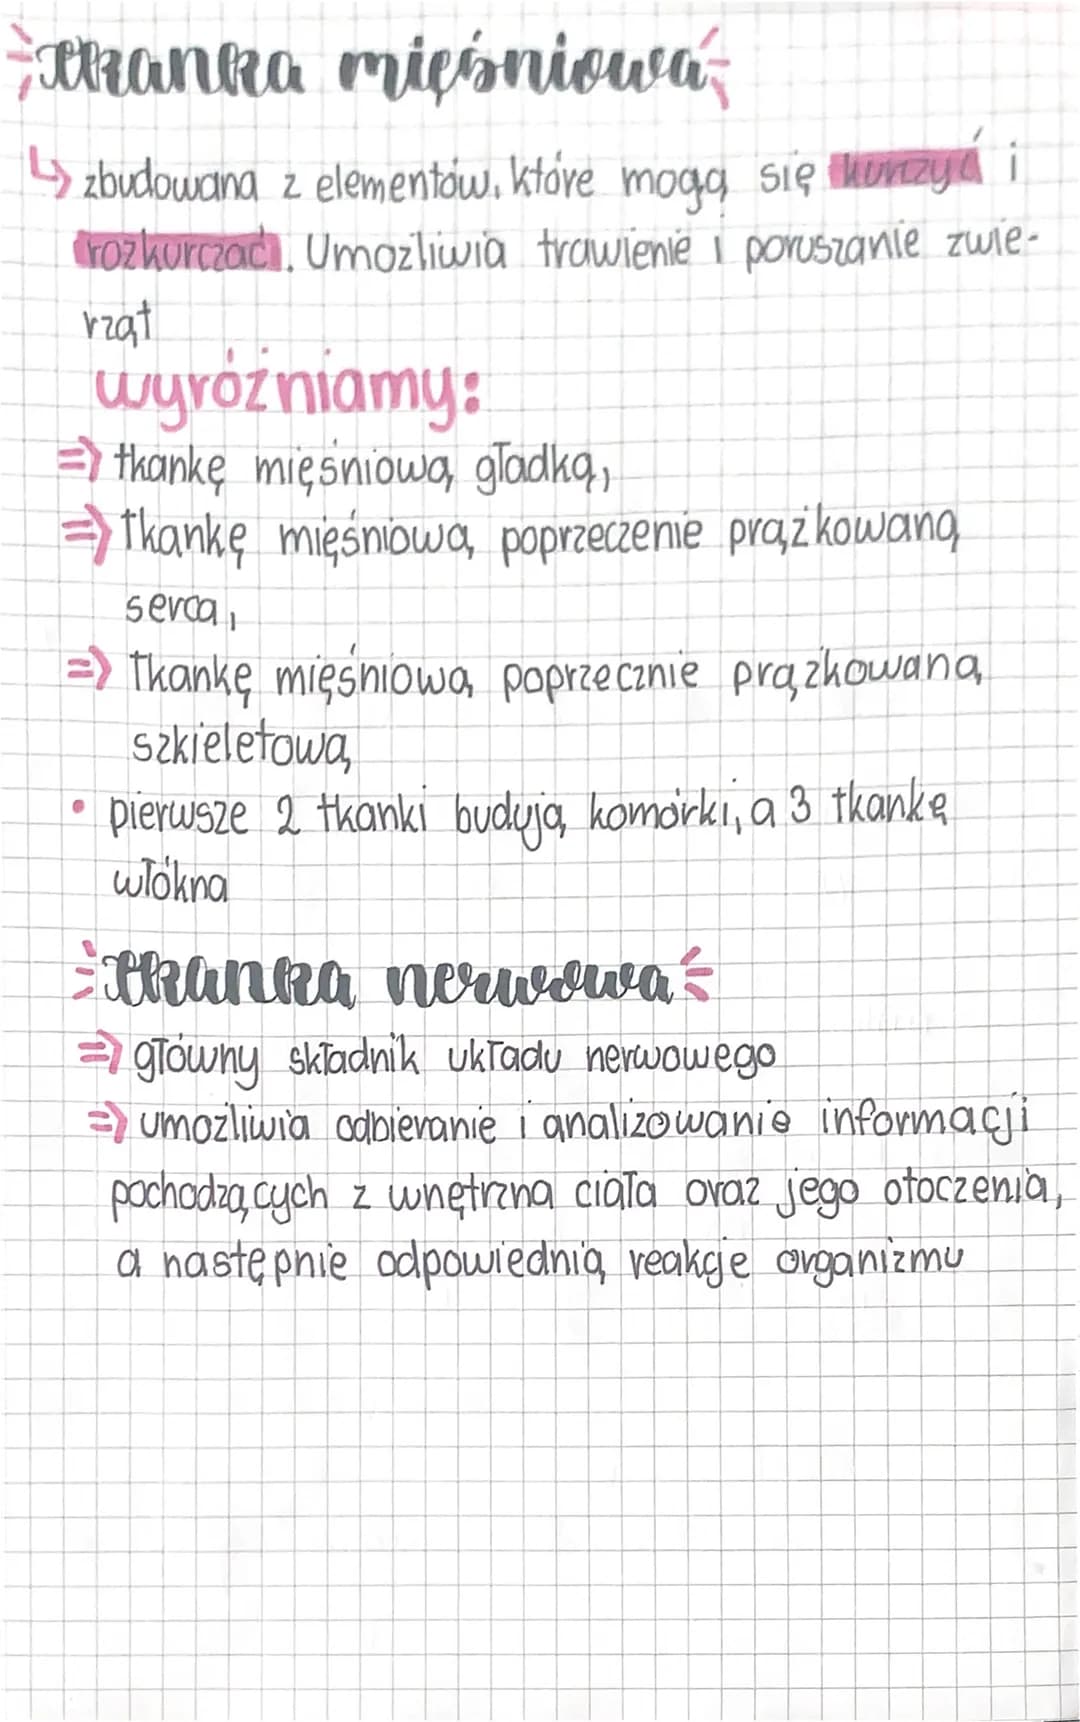 tkanka mięśniowa
↳ zbudowana z elementów, które mogą się kurczyć i
rozkurczać. Umożliwia trawienie i poruszanie zwie-
rząt
wyróżniamy:
=> tkankę mięśniową gładką,
=> Tkankę mięśniową poprzeczenie prążkowaną
serca,
=> Tkankę mięśniową poprzecznie prążkowaną
szkieletową
• pierwsze 2 tkanki budują komórki, a 3 tkankę
włókna
tkanka nerwowa
=> główny składnik układu nerwowego
=> umożliwia odbieranie i analizowanie informacji
pochodzących z wnętrzna ciała oraz jego otoczenia,
a następnie odpowiednią reakcje organizmu